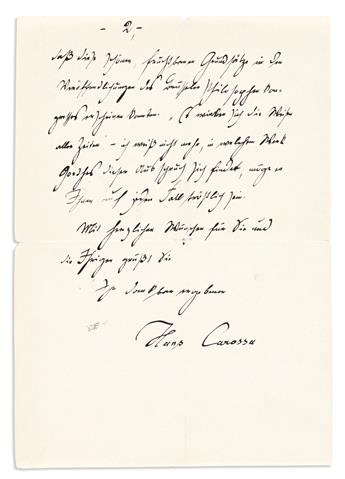 - 2, -
daß diese schönen, fruchtbaren Grundsätze in den
Veröffentlichungen des Philosophen Kon-
gresses erscheinen konnten. „Es winken sich die Weisen
aller Zeiten" – ich weiß nicht mehr, in welchem Werk
Goethes dieser Ausspruch sich findet, möge er
Ihnen auf jeden Fall tröstlich sein.
Mit herzlichen Wünschen für Sie und
die Ihrigen grüßt Sie
Ihr dankbar ergebener
Hans Carossa